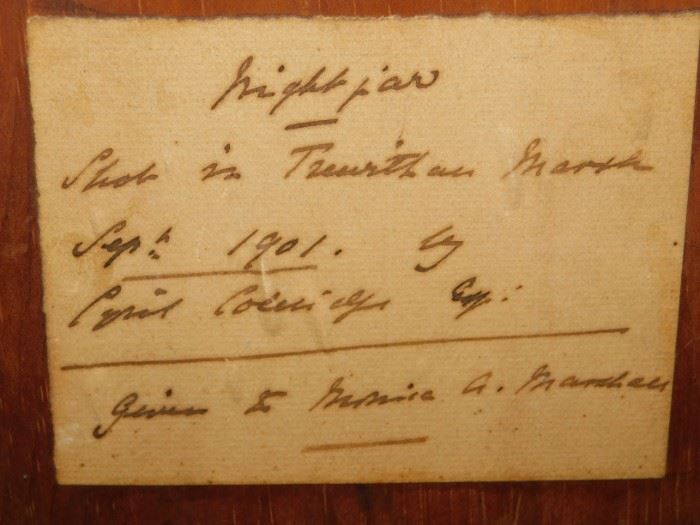 Nightjar
Shot in Trewithan Marsh
Septr. 1901. by
Cyril Coleridge Esq:
Given to Monica A. Marshall